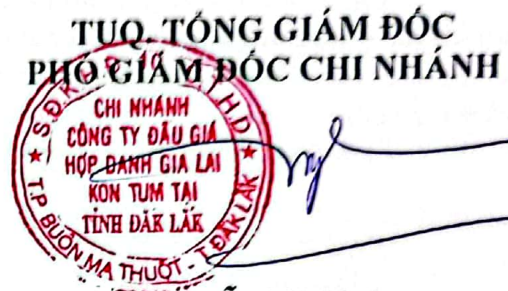 TUQ. TỔNG GIÁM ĐỐC
PHÓ GIÁM ĐỐC CHI NHÁNH
CHI NHÁNH
CÔNG TY ĐẤU GIÁ
HỢP DANH GIA LAI
KON TUM TẠI
TỈNH ĐĂK LĂK
T.P BUÔN MA THUỘT - T.ĐĂK LĂK